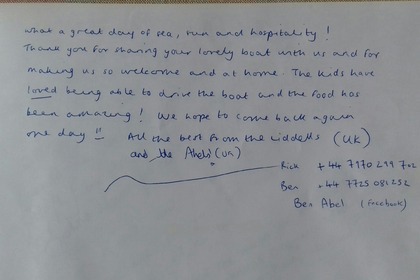 what a great day of sea, sun and hospitality!
Thank you for sharing your lovely boat with us and for
making us so welcome and at home. The kids have
loved being able to drive the boat and the food has
been amazing! We hope to come back again
one day!! All the best from the Liddells (UK)
and the Abels (UK)
Rick +44 7970 299 702
Ben +44 7725 081252
Ben Abel (Facebook)